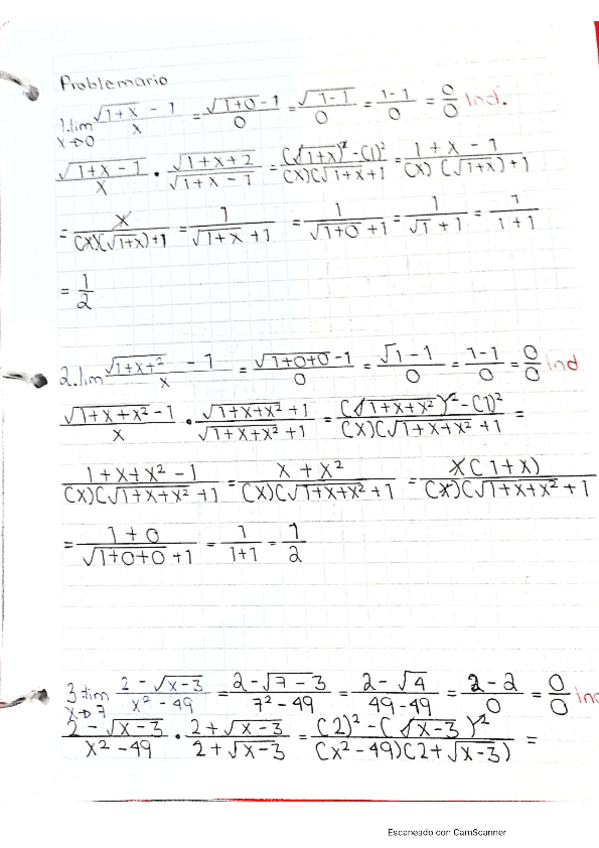 Problemario
1. lim x→0 (√(1+x) - 1)/x = (√(1+0) - 1)/0 = (√1-1)/0 = (1-1)/0 = 0/0 Ind.
(√(1+x) - 1)/x · (√(1+x+2))/(√(1+x) - 1) = ((√(1+x))² - (1)²)/((x)(√(1+x) + 1)) = (1+x-1)/((x)(√(1+x)) + 1)
= x/((x)(√(1+x)) + 1) = 1/(√(1+x) + 1) = 1/(√(1+0) + 1) = 1/(√1 + 1) = 1/(1+1)
= 1/2
2. lim (√(1+x+²) - 1)/x = (√(1+0+0) - 1)/0 = (√1 - 1)/0 = (1-1)/0 = 0/0 ind
(√(1+x+x²) - 1)/x · (√(1+x+x²) + 1)/(√(1+x+x²) + 1) = ((√(1+x+x²))² - (1)²)/((x)(√(1+x+x²) + 1) =
(1+x+x² - 1)/((x)(√(1+x+x²) + 1) = (x + x²)/((x)(√(1+x+x²) + 1) = x(1+x)/((x)(√(1+x+x²) + 1
= (1+0)/(√(1+0+0) + 1) = 1/(1+1) = 1/2
3 lim x→7 (2 - √(x-3))/(x² - 49) = (2 - √(7-3))/(7² - 49) = (2 - √4)/(49-49) = (2-2)/0 = 0/0 ind
(2 - √(x-3))/(x² - 49) · (2 + √(x-3))/(2 + √(x-3)) = ((2)² - (√(x-3))²)/((x² - 49)(2 + √(x-3))) =
Escaneado con CamScanner